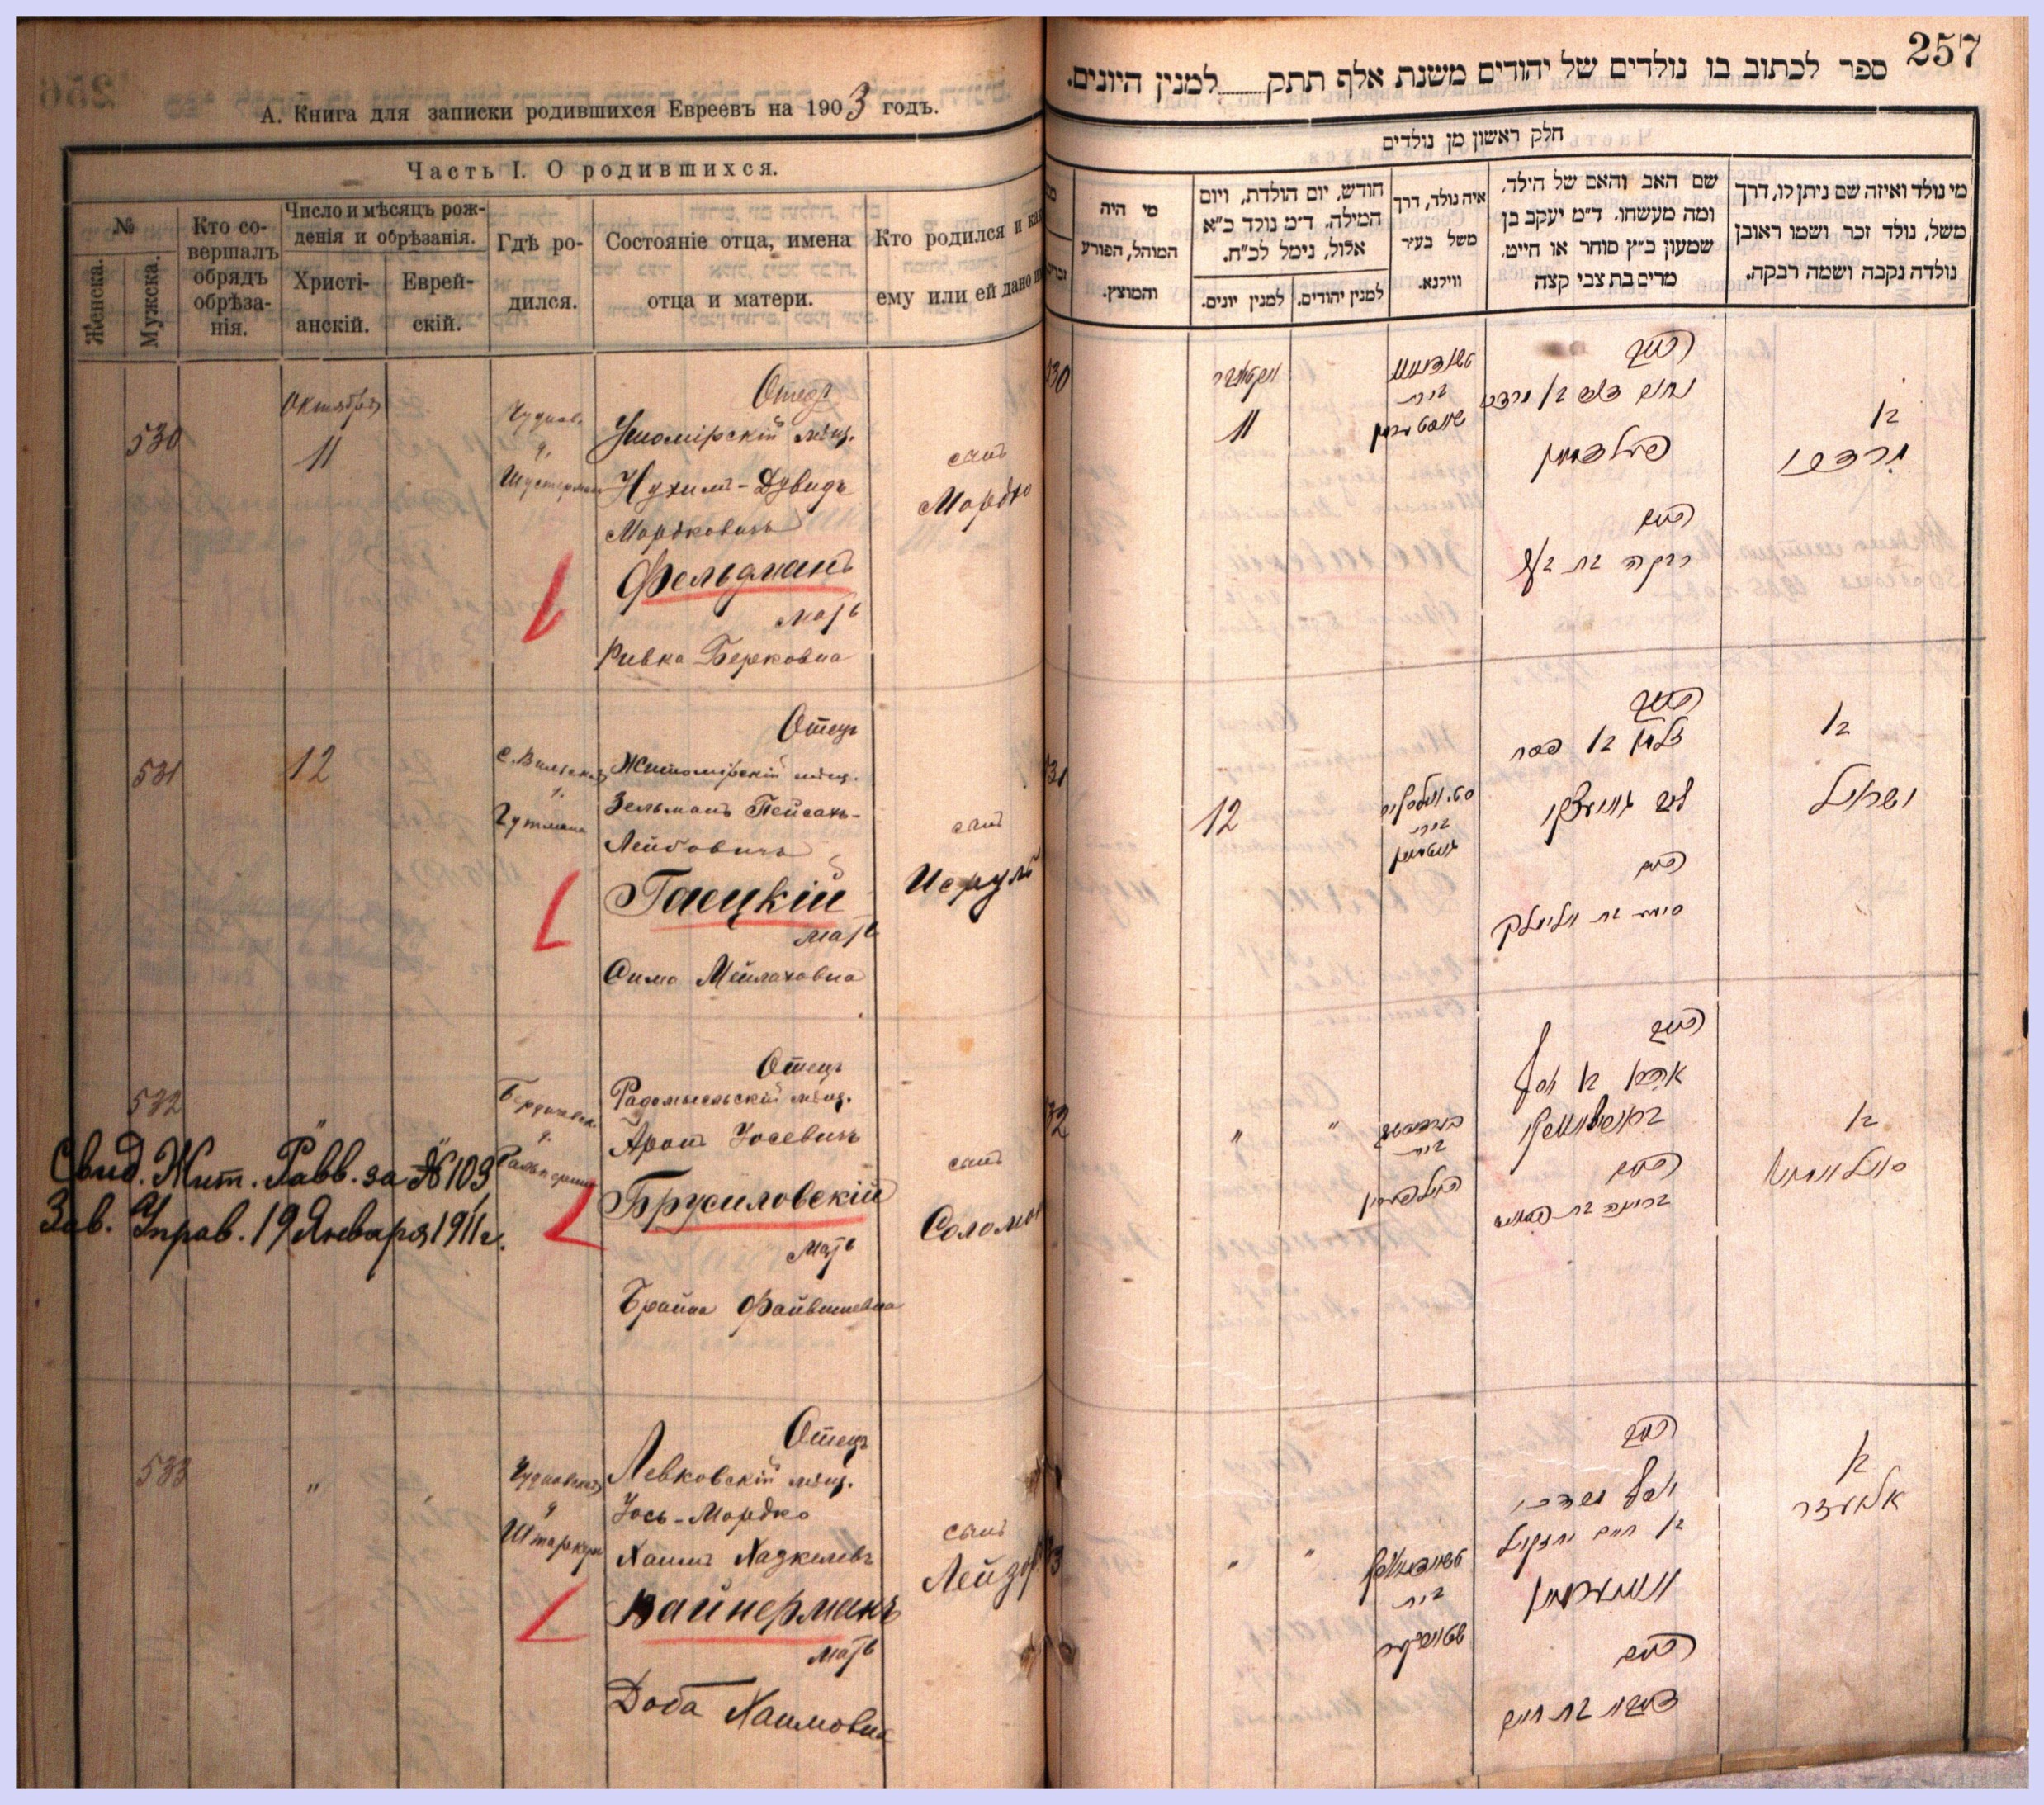 А. Книга для записки родившихся Евреевъ на 1903 годъ.
Часть I. О родившихся.
№
Женска.
Мужска.
Кто совершалъ
обрядъ
обрѣзанія.
Число и мѣсяцъ рожденія и обрѣзанія.
Христіанскій.
Еврейскій.
Гдѣ родился.
Состояніе отца, имена
отца и матери.
Кто родился и
ему или ей дано
530
Октября
11
Чуднов.
Отецъ
Ушомірскій мѣщ.
Нухимъ-Дувидъ
Мордковичъ
Фельдманъ
мать
Ривка Берковна
сынъ
Мордко
531
12
Гутмана
Отецъ
Житомірскій мѣщ.
Зельманъ Пейсахъ-
Лейбовичъ
Гаецкій
мать
Сима Мейлаховна
сынъ
Исруль
532
"
Отецъ
Радомысльскій мѣщ.
Аронъ Іосевичъ
Брусиловскій
мать
Брайна Файвишевна
сынъ
Соломон
Свид. Жит. Равв. за № 103
Зав. Управ. 19 Января 1911 г.
533
"
Чудновская
Отецъ
Левковскій мѣщ.
Іось-Мордко
Хаимъ Хацкелевъ
Вайнерманъ
мать
Доба Хаимовна
сынъ
Лейзоръ
257
ספר לכתוב בו נולדים של יהודים משנת אלף תתק___למנין היונים.
חלק ראשון מן נולדים
מי נולד ואיזה שם ניתן לו, דרך
משל, נולד זכר ושמו ראובן
נולדה נקבה ושמה רבקה.
שם האב והאם של הילד.
ומה מעשהו. ד״מ יעקב בן
שמעון כ״ץ סוחר או חייט.
מרים בת צבי קצה
איה נולד, דרך
משל בעיר
ווילנא.
חודש, יום הולדת, ויום
המילה. ד״מ נולד כ״א
אלול, נימל לכ״ח.
למנין יהודים.
למנין יונים.
מי היה
המוהל, הפורע
והמוצץ.
בן
מרדכי
האב
פעלדמאן
האם
רבקה בת בער
בית
אקטאבר
11
בן
ישראל
האב
זלמן בן פסח
האם
סימא בת אלימלך
בית
גוטמאן
12
בן
האב
אהרן בן יוסף
האם
בריינה בת
בית
"
"
בן
אלעזר
האב
יוסף מרדכי
בן חיים יחזקאל
וויינערמאן
האם
דאבא בת חיים
בית
"
"